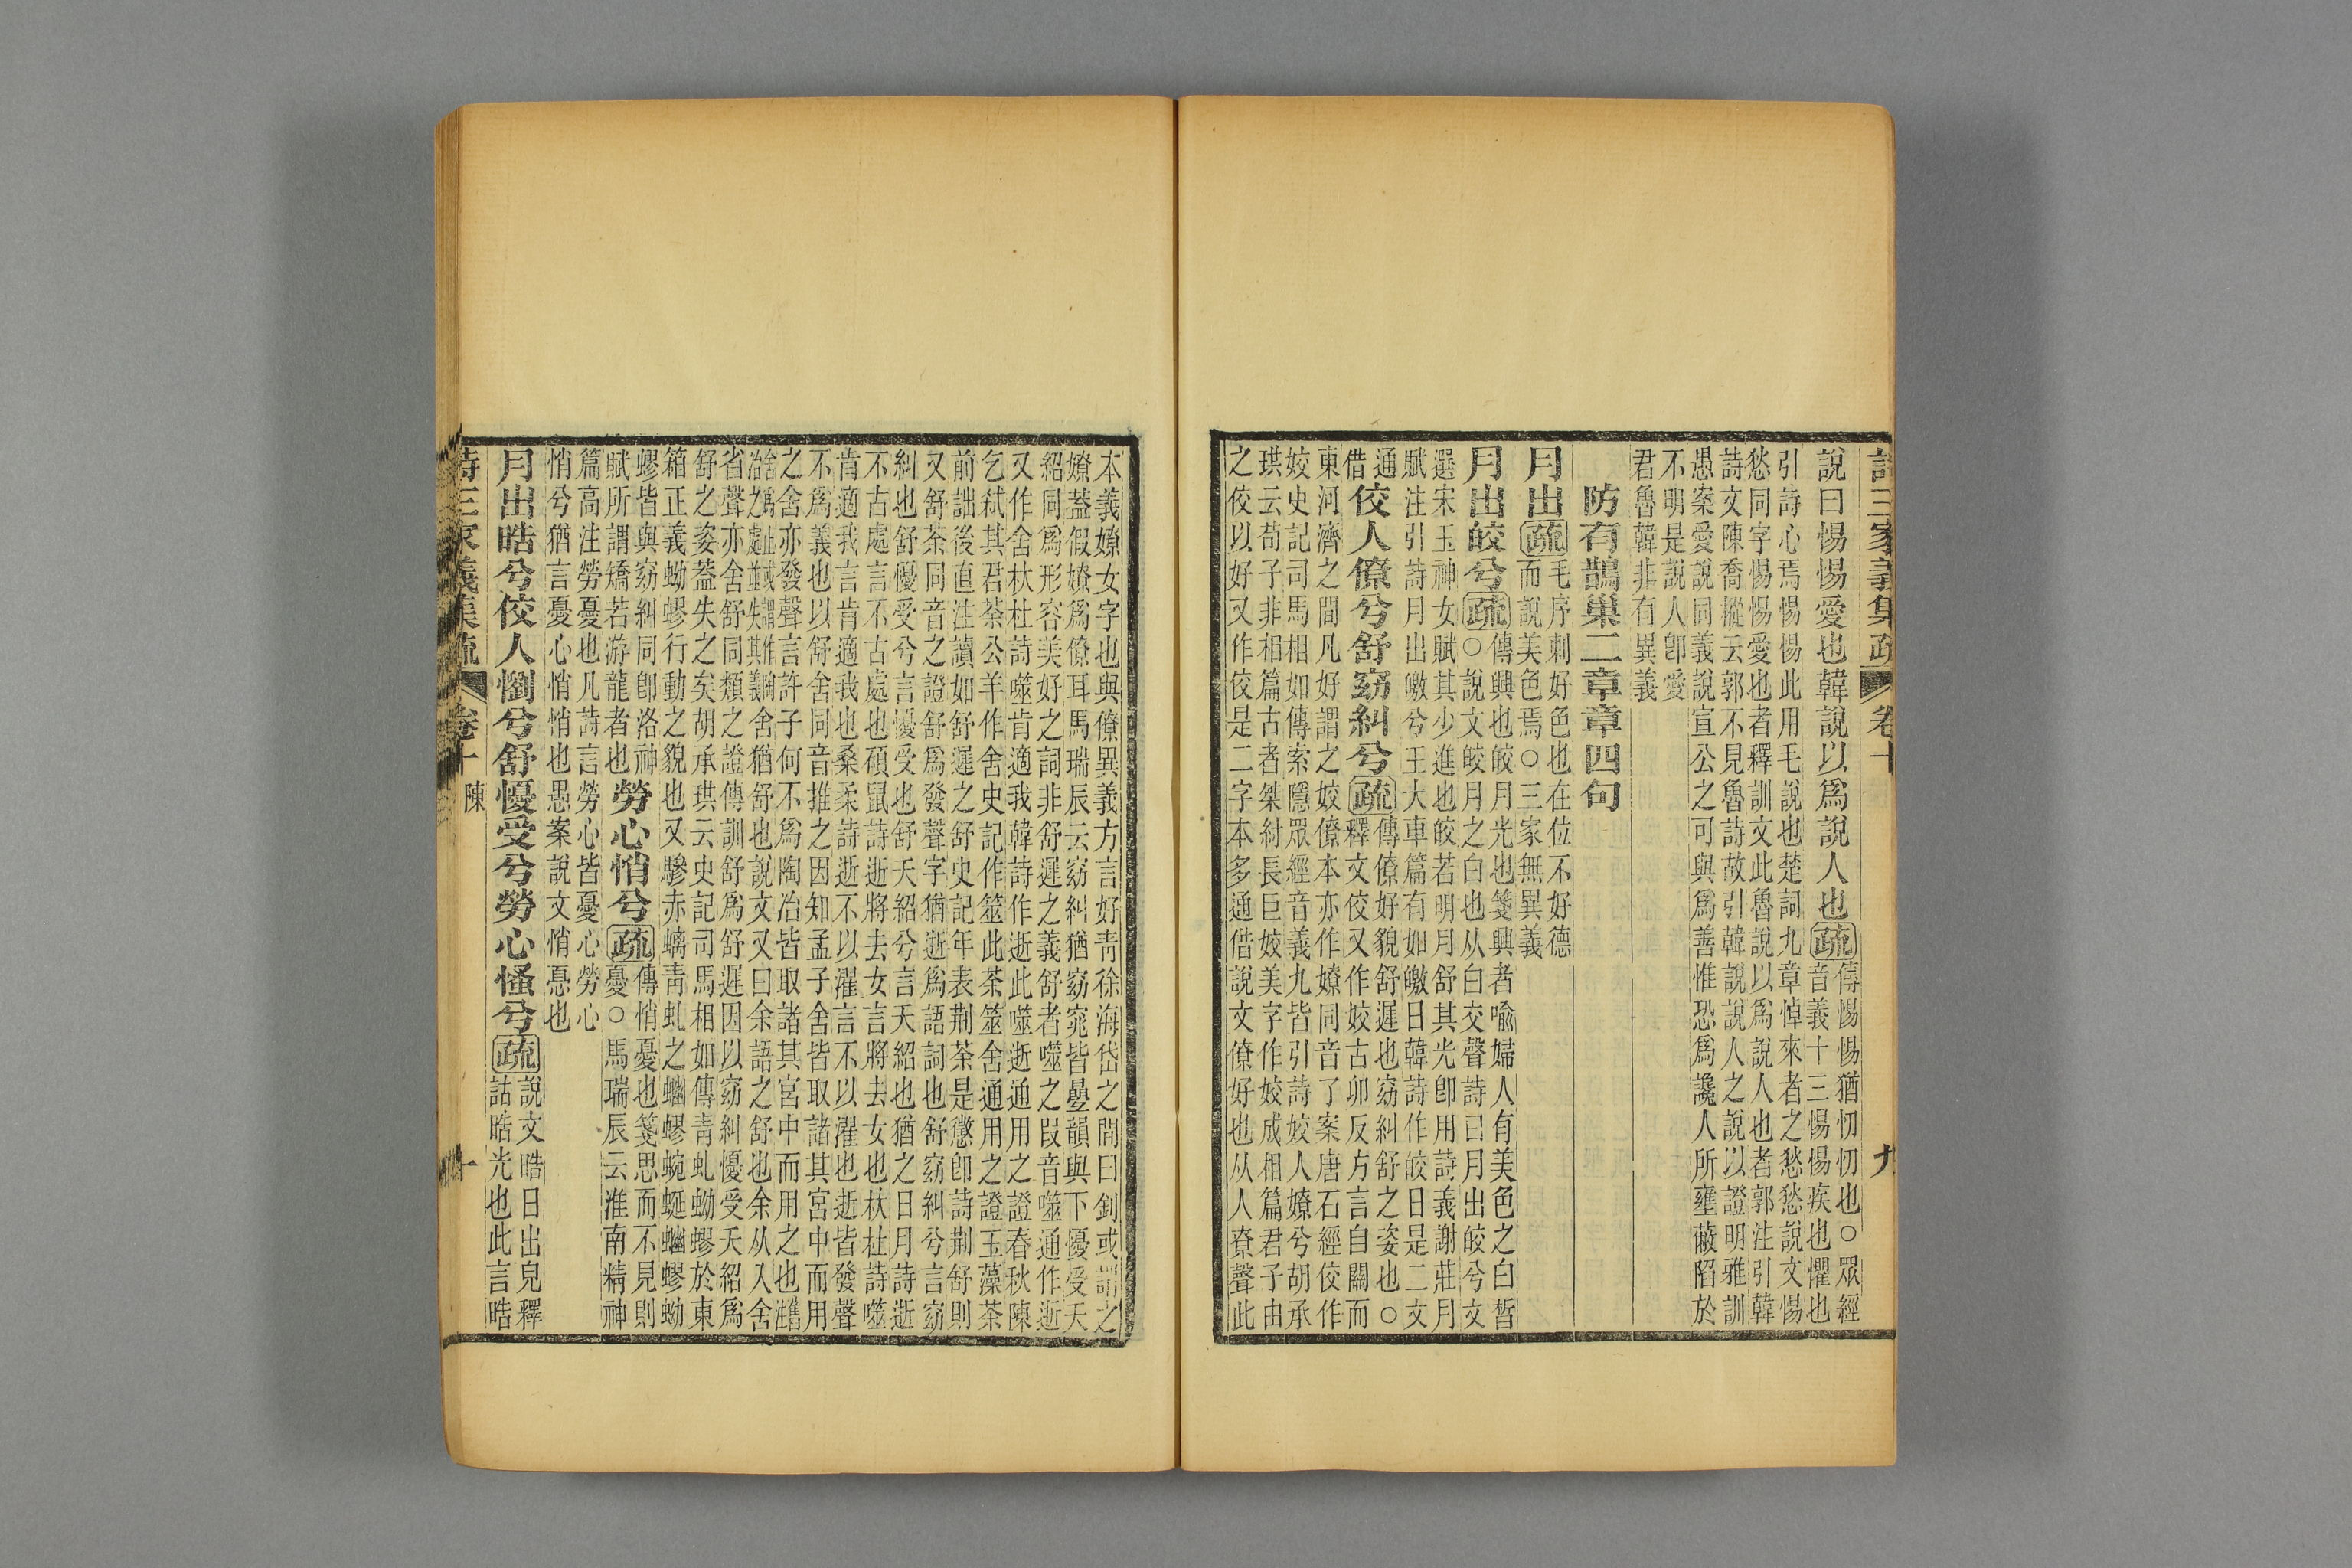 詩三家義集疏 卷十 九
說曰惕惕愛也韓說以爲說人也疏傳惕惕猶忉忉也○眾經
音義十三惕惕疾也懼也
引詩心焉惕惕此用毛說也楚詞九章悼來者之愁愁說文惕
愁同字惕惕愛也者釋訓文此魯說以爲說人也者郭注引韓
詩文陳喬樅云郭不見魯詩故引韓說說人之說以證明雅訓
愚案愛說同義說宣公之可與爲善惟恐爲讒人所壅蔽陷於
不明是說人卽愛
君魯韓非有異義
防有鵲巢二章章四句
月出疏毛序刺好色也在位不好德
而說美色焉○三家無異義
月出皎兮疏傳興也皎月光也箋興者喻婦人有美色之白皙
○說文皎月之白也从白交聲詩曰月出皎兮文
選宋玉神女賦其少進也皎若明月舒其光卽用詩義謝莊月
賦注引詩月出皦兮王大車篇有如皦日韓詩作皎日是二文
通
借佼人僚兮舒窈糾兮疏傳僚好貌舒遲也窈糾舒之姿也○
釋文佼又作姣古卯反方言自關而
東河濟之間凡好謂之姣僚本亦作嫽同音了案唐石經佼作
姣史記司馬相如傳索隱眾經音義九皆引詩姣人嫽兮胡承
珙云荀子非相篇古者桀紂長巨姣美字作姣成相篇君子由
之佼以好又作佼是二字本多通借說文僚好也从人尞聲此
本義嫽女字也與僚異義方言好靑徐海岱之間曰釗或謂之
嫽蓋假嫽爲僚耳馬瑞辰云窈糾猶窈窕皆疊韻與下懮受夭
紹同爲形容美好之詞非舒遲之義舒者噬之叚音噬通作逝
又作舍杕杜詩噬肯適我韓詩作逝此噬逝通用之證春秋陳
乞弒其君荼公羊作舍史記作筮此荼筮舍通用之證玉藻荼
前詘後直注讀如舒遲之舒史記年表荆荼是懲卽詩荆舒則
又舒荼同音之證舒爲發聲字猶逝爲語詞也舒窈糾兮言窈
糾也舒懮受兮言懮受也舒夭紹兮言夭紹也猶之日月詩逝
不古處言不古處也碩鼠詩逝將去女言將去女也杕杜詩噬
肯適我言肯適我也桑柔詩逝不以濯言不以濯也逝皆發聲
不爲義也以舒舍同音推之因知孟子舍皆取諸其宮中而用
之舍亦發聲言許子何不爲陶冶皆取諸其宮中而用之也
省聲亦舍舒同類之證傳訓舒爲舒遲因以窈糾懮受夭紹爲
舒之姿蓋失之矣胡承珙云史記司馬相如傳靑虬蚴蟉於東
箱正義蚴蟉行動之貌也又驂赤螭靑虬之蟉蜿蜒蟉蚴
蟉皆與窈糾同卽洛神
賦所謂矯若游龍者也勞心悄兮疏傳悄憂也箋思而不見則
憂○馬瑞辰云淮南精神
篇高注勞憂也凡詩言勞心皆憂心勞心
悄兮猶言憂心悄悄也愚案說文悄惪也
月出晧兮佼人懰兮舒懮受兮勞心慅兮疏說文晧日出皃釋
詁晧光也此言晧
詩三家義集疏 卷十 陳 十